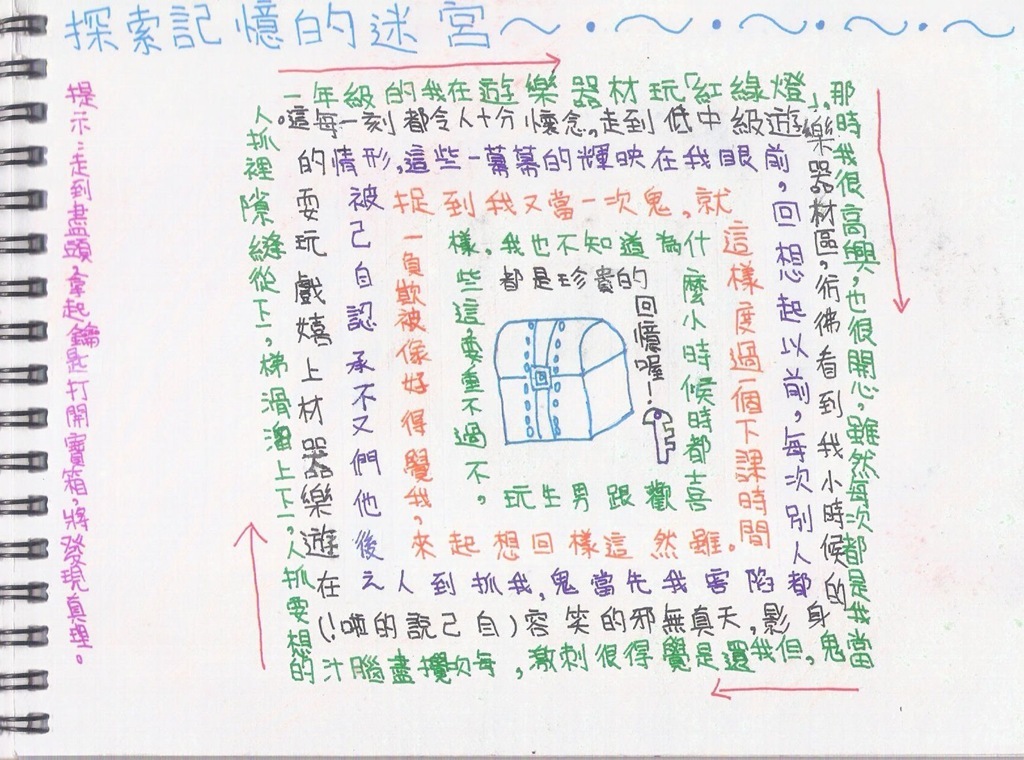 探索記憶的迷宮～・～・～・～・～
提示:走到盡頭拿起鑰匙打開寶箱,將發現真理。
一年級的我在遊樂器材玩「紅綠燈」,
那時我很高興,也很開心,雖然每次都是我當
鬼,但我還是覺得很刺激,每次攪盡腦汁的
想要抓人,一下上溜滑梯,一下從縫隙裡抓人
。這每一刻都令人十分懷念,走到低中級遊
樂器材區,彷彿看到我小時候的
身影,天真無邪的笑容(自己說的啦!)
在遊樂器材上嬉戲玩耍
的情形,這些一幕幕的輝映在我眼前,
回想起以前,每次別人都
陷害我先當鬼,我抓到人之
後他們又不承認自己被
捉到我又當一次鬼,就
這樣度過一個下課時間
。雖然這樣回想起來
,我覺得好像被欺負一
樣,我也不知道為什
麼小時候時都喜
歡跟男生玩
,不過不重要,這些
都是珍貴的
回憶喔!